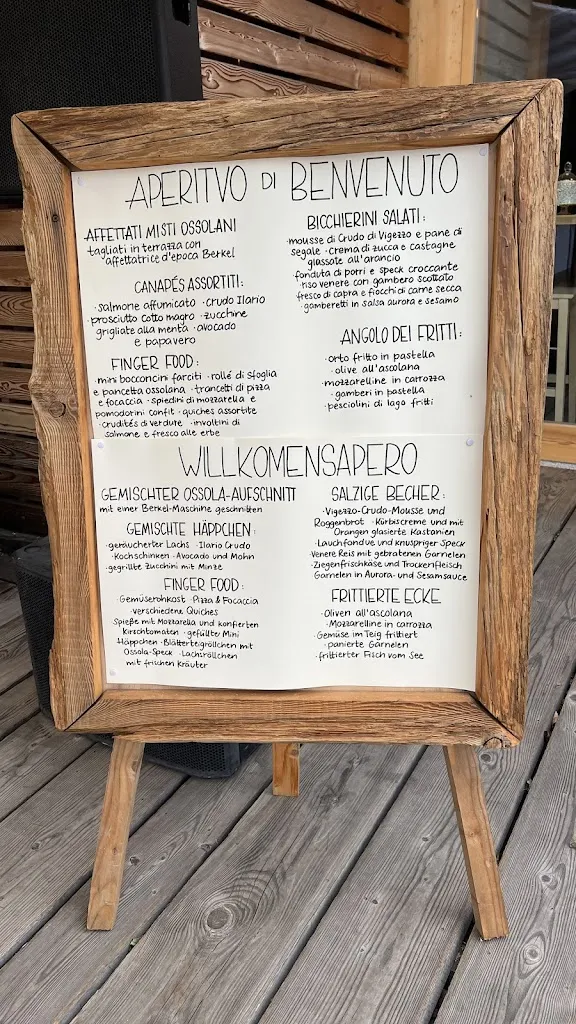 APERITVO DI BENVENUTO
AFFETTATI MISTI OSSOLANI
tagliati in terrazza con
affettatrice d'epoca Berkel
CANAPÉS ASSORTITI:
·salmone affumicato ·crudo Ilario
·prosciutto cotto magro ·zucchine
grigliate alla menta ·avocado
e papavero
FINGER FOOD:
·mini bocconcini farciti ·rollé di sfoglia
e pancetta ossolana ·trancetti di pizza
e focaccia ·spiedini di mozzarella e
pomodorini confit ·quiches assortite
·crudités di verdure ·involtini di
salmone e fresco alle erbe
BICCHIERINI SALATI:
·mousse di Crudo di Vigezzo e pane di
segale ·crema di zucca e castagne
glassate all'arancio
·fonduta di porri e speck croccante
·riso venere con gambero scottato
·fresco di capra e fiocchi di carne secca
·gamberetti in salsa aurora e sesamo
ANGOLO DEI FRITTI:
·orto fritto in pastella
·olive all'ascolana
·mozzarelline in carrozza
·gamberi in pastella
·pesciolini di lago fritti
WILLKOMENSAPERO
GEMISCHTER OSSOLA-AUFSCHNITT
mit einer Berkel-Maschine geschnitten
GEMISCHTE HÄPPCHEN:
·geräucherter Lachs ·Ilario Crudo
·Kochschinken ·Avocado und Mohn
·gegrillte Zucchini mit Minze
FINGER FOOD:
·Gemüserohkost ·Pizza & Focaccia
·verschiedene Quiches
Spieße mit Mozzarella und konfierten
Kirschtomaten ·gefüllte Mini
Häppchen ·Blätterteigröllchen mit
Ossola-Speck ·Lachsröllchen
mit frischen Kräuter
SALZIGE BECHER:
·Vigezzo-Crudo-Mousse und
Roggenbrot ·Kürbiscreme und mit
Orangen glasierte Kastanien
·Lauchfondue und knuspriger Speck
·Venere Reis mit gebratenen Garnelen
·Ziegenfrischkäse und Trockenfleisch
Garnelen in Aurora- und Sesamsauce
FRITTIERTE ECKE
·Oliven all'ascolana
·Mozzarelline in carrozza
Gemüse im Teig frittiert
·panierte Garnelen
·frittierter Fisch vom See